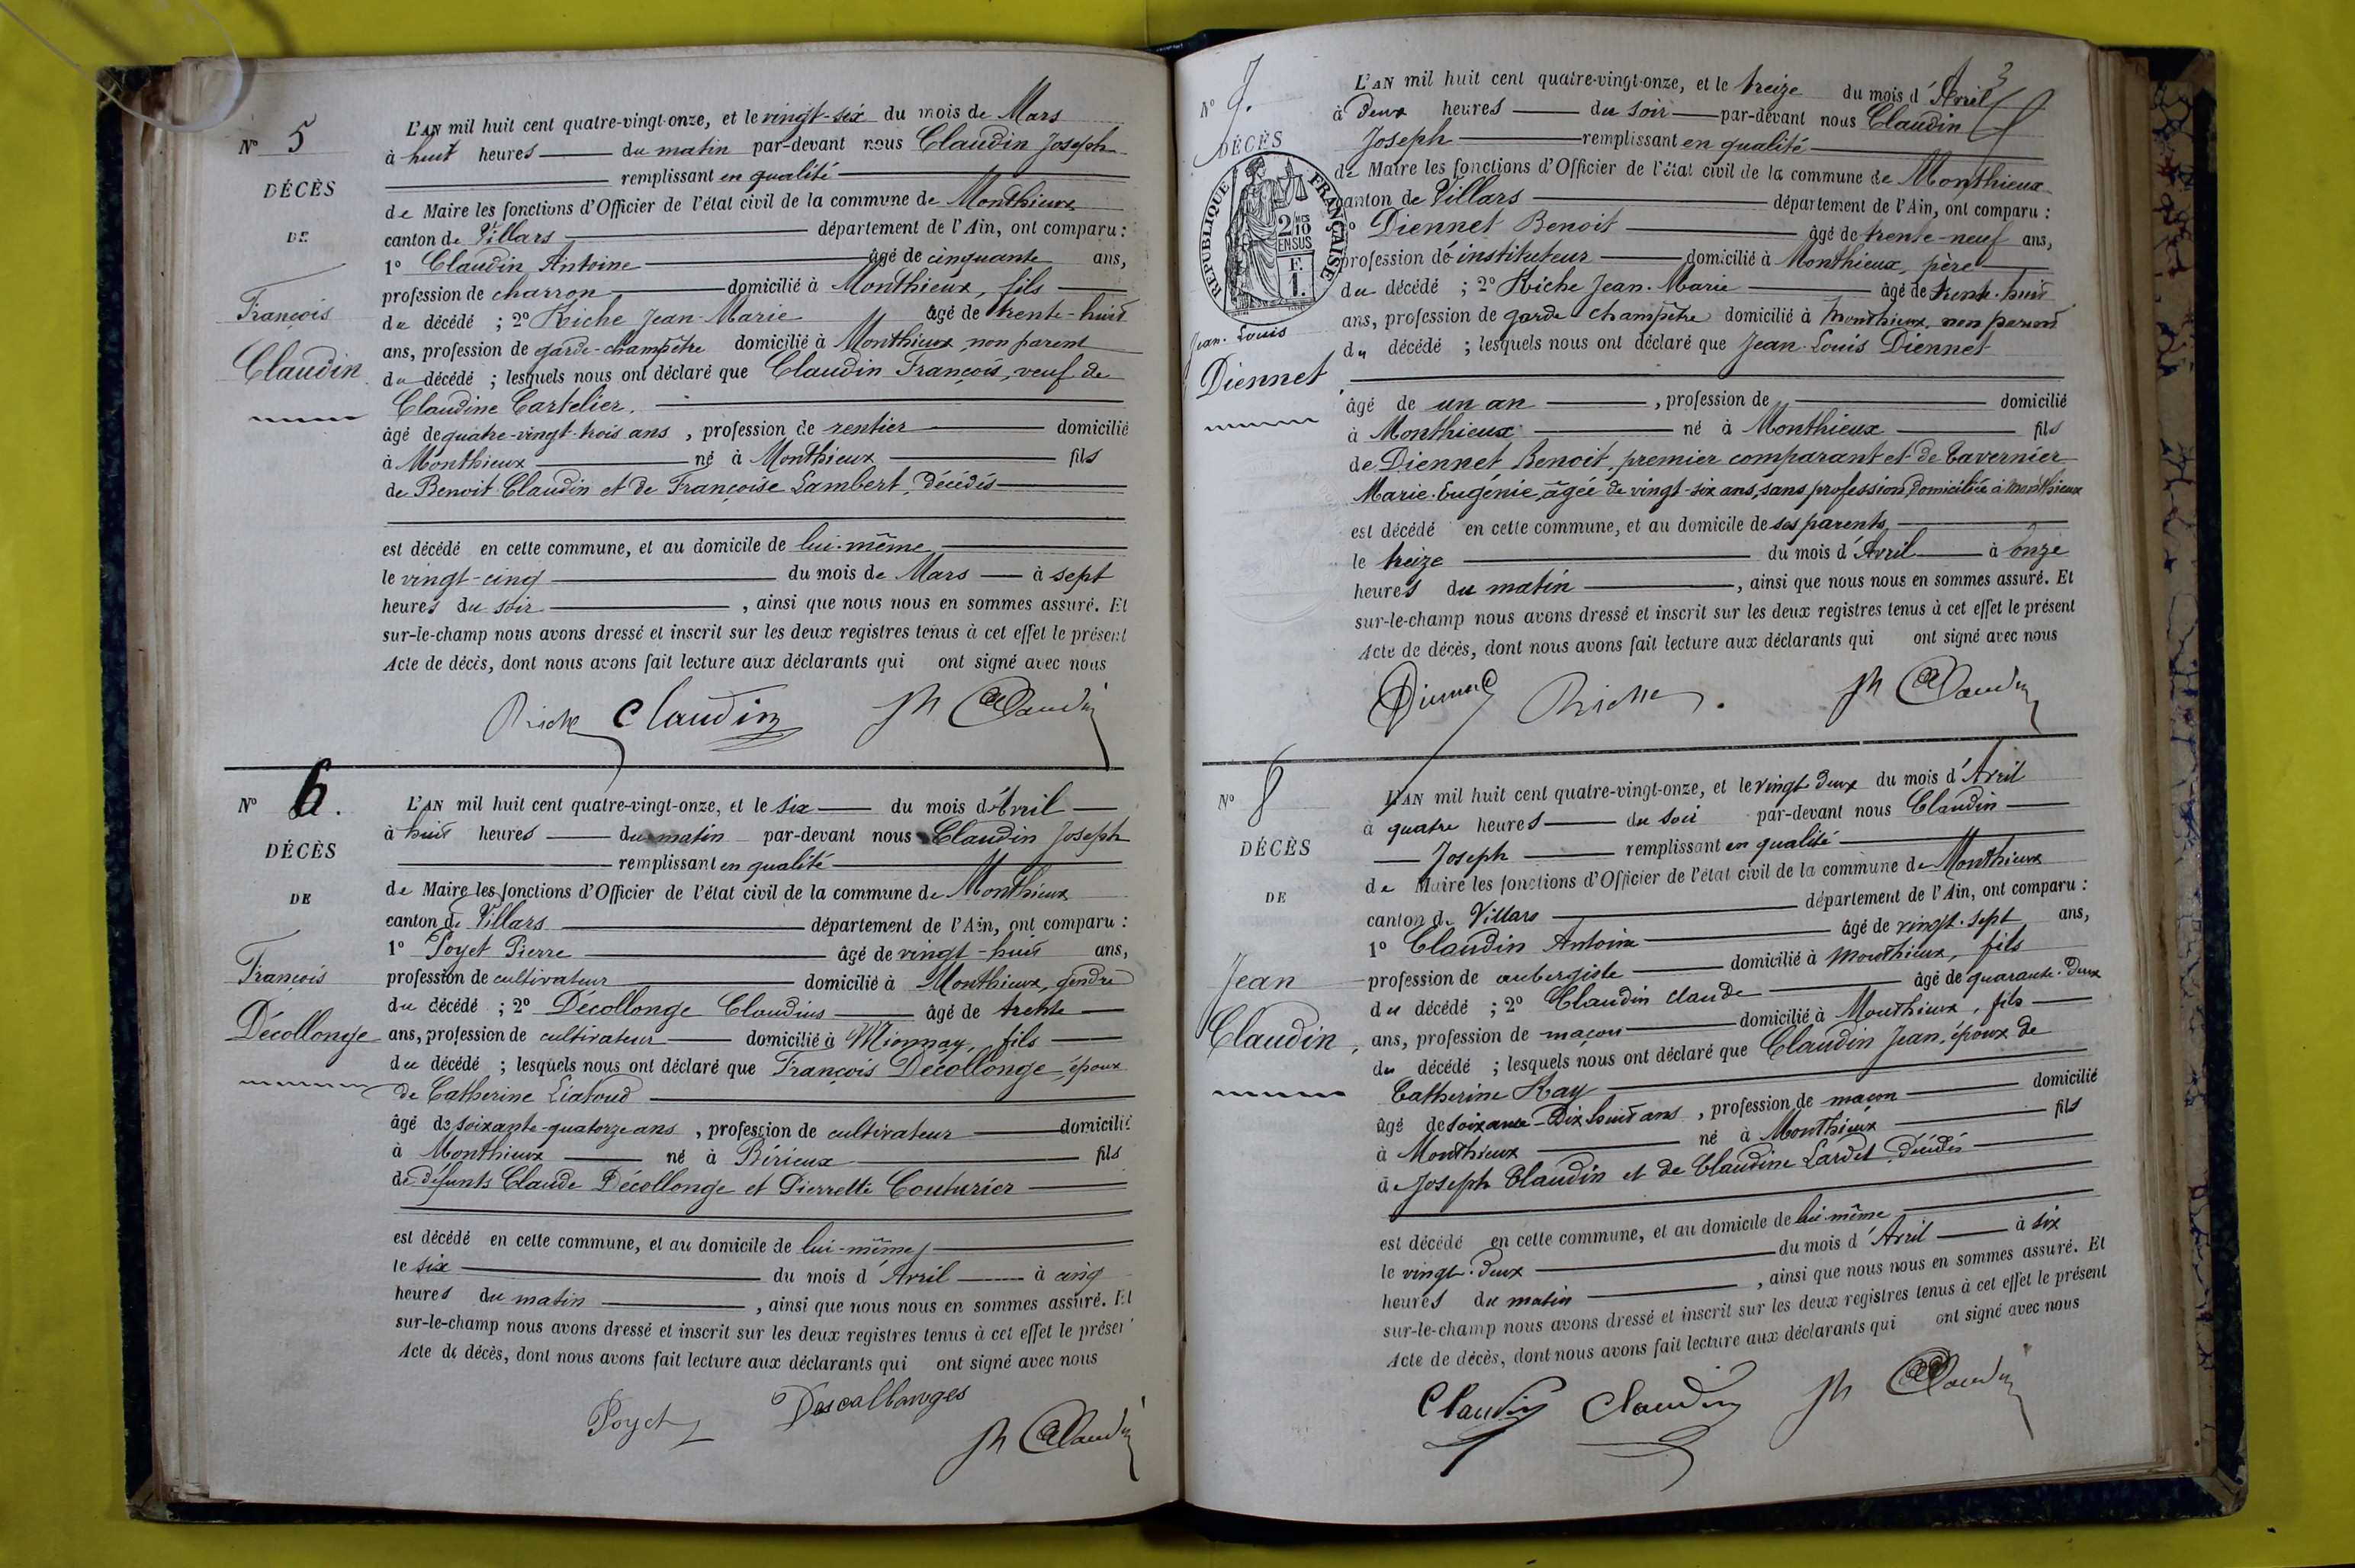 N° 5
DÉCÈS
DE
François
Claudin
L'AN mil huit cent quatre-vingt-onze, et le vingt-six du mois de Mars
à huit heures du matin par-devant nous Claudin Joseph
remplissant en qualité
de Maire les fonctions d'Officier de l'état civil de la commune de Monthieux
canton de Villars département de l'Ain, ont comparu :
1° Claudin Antoine âgé de cinquante ans,
profession de charron domicilié à Monthieux, fils
du décédé ; 2° Riche Jean-Marie âgé de trente-huit
ans, profession de garde-champêtre domicilié à Monthieux, non parent
du décédé ; lesquels nous ont déclaré que Claudin François, veuf de
Claudine Cartelier.
âgé de quatre-vingt-trois ans , profession de rentier domicilié
à Monthieux né à Monthieux fils
de Benoit Claudin et de Françoise Lambert, décédés
est décédé en cette commune, et au domicile de lui-même
le vingt-cinq du mois de Mars à sept
heures du soir , ainsi que nous nous en sommes assuré. Et
sur-le-champ nous avons dressé et inscrit sur les deux registres tenus à cet effet le présent
Acte de décès, dont nous avons fait lecture aux déclarants qui ont signé avec nous
Riche Claudin Jh Claudin
N° 6.
DÉCÈS
DE
François
Décollonge
L'AN mil huit cent quatre-vingt-onze, et le six du mois d'Avril
à huit heures du matin par-devant nous Claudin Joseph
remplissant en qualité
de Maire les fonctions d'Officier de l'état civil de la commune de Monthieux
canton de Villars département de l'Ain, ont comparu :
1° Poyet Pierre âgé de vingt-huit ans,
profession de cultivateur domicilié à Monthieux, gendre
du décédé ; 2° Décollonge Claudius âgé de trente
ans, profession de cultivateur domicilié à Mionnay, fils
du décédé ; lesquels nous ont déclaré que François Décollonge, époux
de Catherine Liatoud
âgé de soixante-quatorze ans , profession de cultivateur domicilié
à Monthieux né à Birieux fils
de défunts Claude Décollonge et Pierrette Couturier
est décédé en cette commune, et au domicile de lui-même
le six du mois d'Avril à cinq
heures du matin , ainsi que nous nous en sommes assuré. Et
sur-le-champ nous avons dressé et inscrit sur les deux registres tenus à cet effet le présen
Acte de décès, dont nous avons fait lecture aux déclarants qui ont signé avec nous
Poyet Descallonges
Jh Claudin
3
N° 7.
DÉCÈS
RÉPUBLIQUE FRANÇAISE
2 MES
10
EN SUS
F.
1.
Jean-Louis
Diennet
L'AN mil huit cent quatre-vingt-onze, et le treize du mois d'Avril
à deux heures du soir par-devant nous Claudin
Joseph remplissant en qualité
de Maire les fonctions d'Officier de l'état civil de la commune de Monthieux
canton de Villars département de l'Ain, ont comparu :
1° Diennet Benoit âgé de trente-neuf ans,
profession de instituteur domicilié à Monthieux, père
du décédé ; 2° Riche Jean-Marie âgé de trente-huit
ans, profession de garde champêtre domicilié à Monthieux, non parent
du décédé ; lesquels nous ont déclaré que Jean-Louis Diennet
âgé de un an , profession de domicilié
à Monthieux né à Monthieux fils
de Diennet Benoit, premier comparant et de Tavernier
Marie-Eugénie, âgée de vingt-six ans, sans profession, domiciliée à Monthieux
est décédé en cette commune, et au domicile de ses parents
le treize du mois d'Avril à onze
heures du matin , ainsi que nous nous en sommes assuré. Et
sur-le-champ nous avons dressé et inscrit sur les deux registres tenus à cet effet le présent
Acte de décès, dont nous avons fait lecture aux déclarants qui ont signé avec nous
Diennet Riche. Jh Claudin
N° 8
DÉCÈS
DE
Jean
Claudin,
L'AN mil huit cent quatre-vingt-onze, et le vingt-deux du mois d'Avril
à quatre heures du soir par-devant nous Claudin
Joseph remplissant en qualité
de Maire les fonctions d'Officier de l'état civil de la commune de Monthieux
canton de Villars département de l'Ain, ont comparu :
1° Claudin Antoine âgé de vingt-sept ans,
profession de aubergiste domicilié à Monthieux, fils
du décédé ; 2° Claudin Claude âgé de quarante-deux
ans, profession de maçon domicilié à Monthieux, fils
du décédé ; lesquels nous ont déclaré que Claudin Jean, époux de
Catherine Ray
âgé de soixante-Dix huit ans , profession de maçon domicilié
à Monthieux né à Monthieux fils
de Joseph Claudin et de Claudine Lardet, décédés
est décédé en cette commune, et au domicile de lui-même
le vingt-deux du mois d'Avril à six
heures du matin , ainsi que nous nous en sommes assuré. Et
sur-le-champ nous avons dressé et inscrit sur les deux registres tenus à cet effet le présent
Acte de décès, dont nous avons fait lecture aux déclarants qui ont signé avec nous
Claudin Claudin Jh Claudin